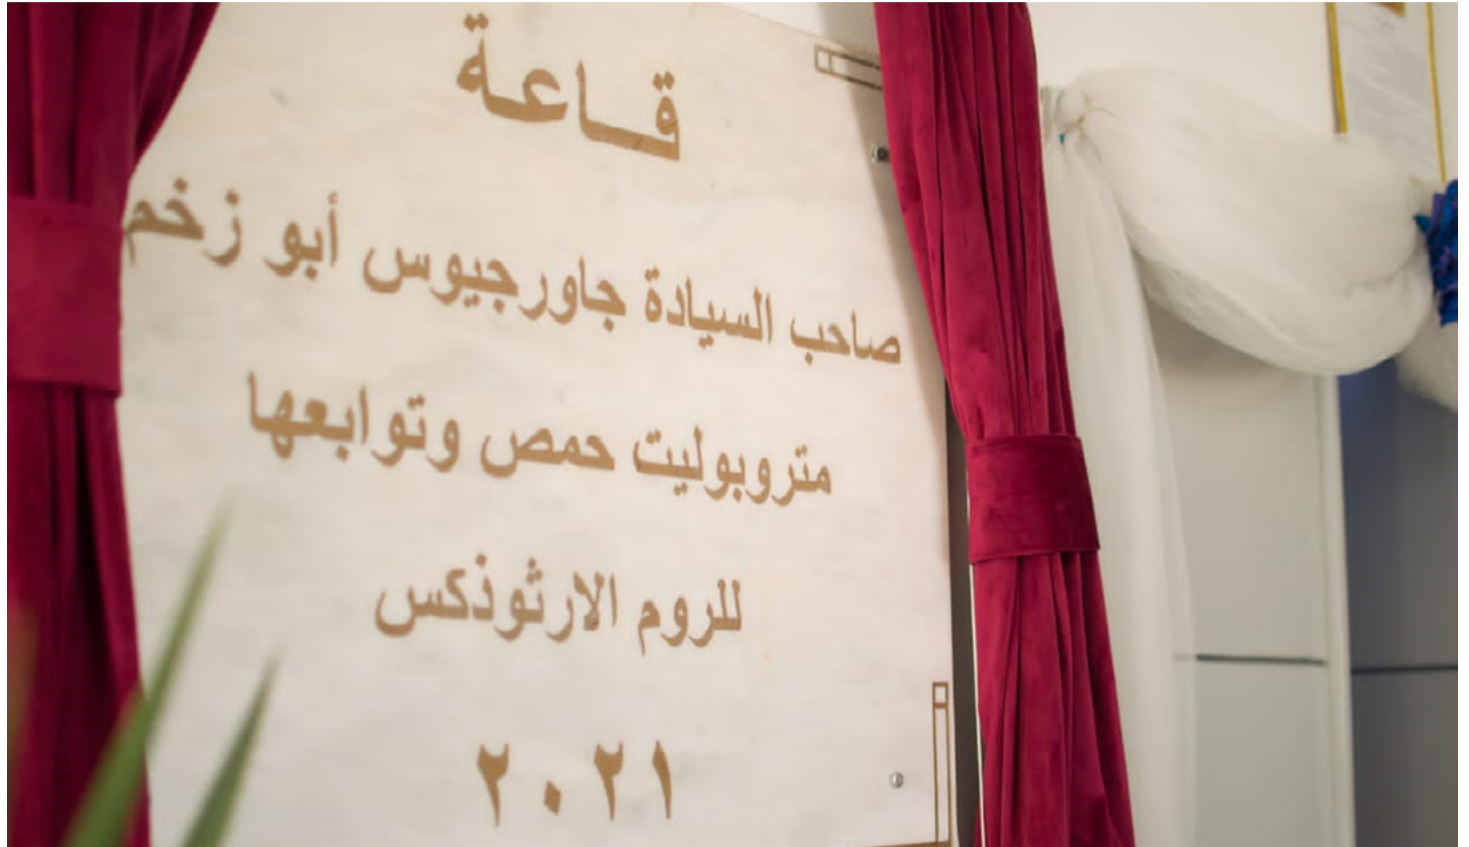 قاعة
صاحب السيادة جاورجيوس أبو زخم
متروبوليت حمص وتوابعها
للروم الارثوذكس
٢٠٢١